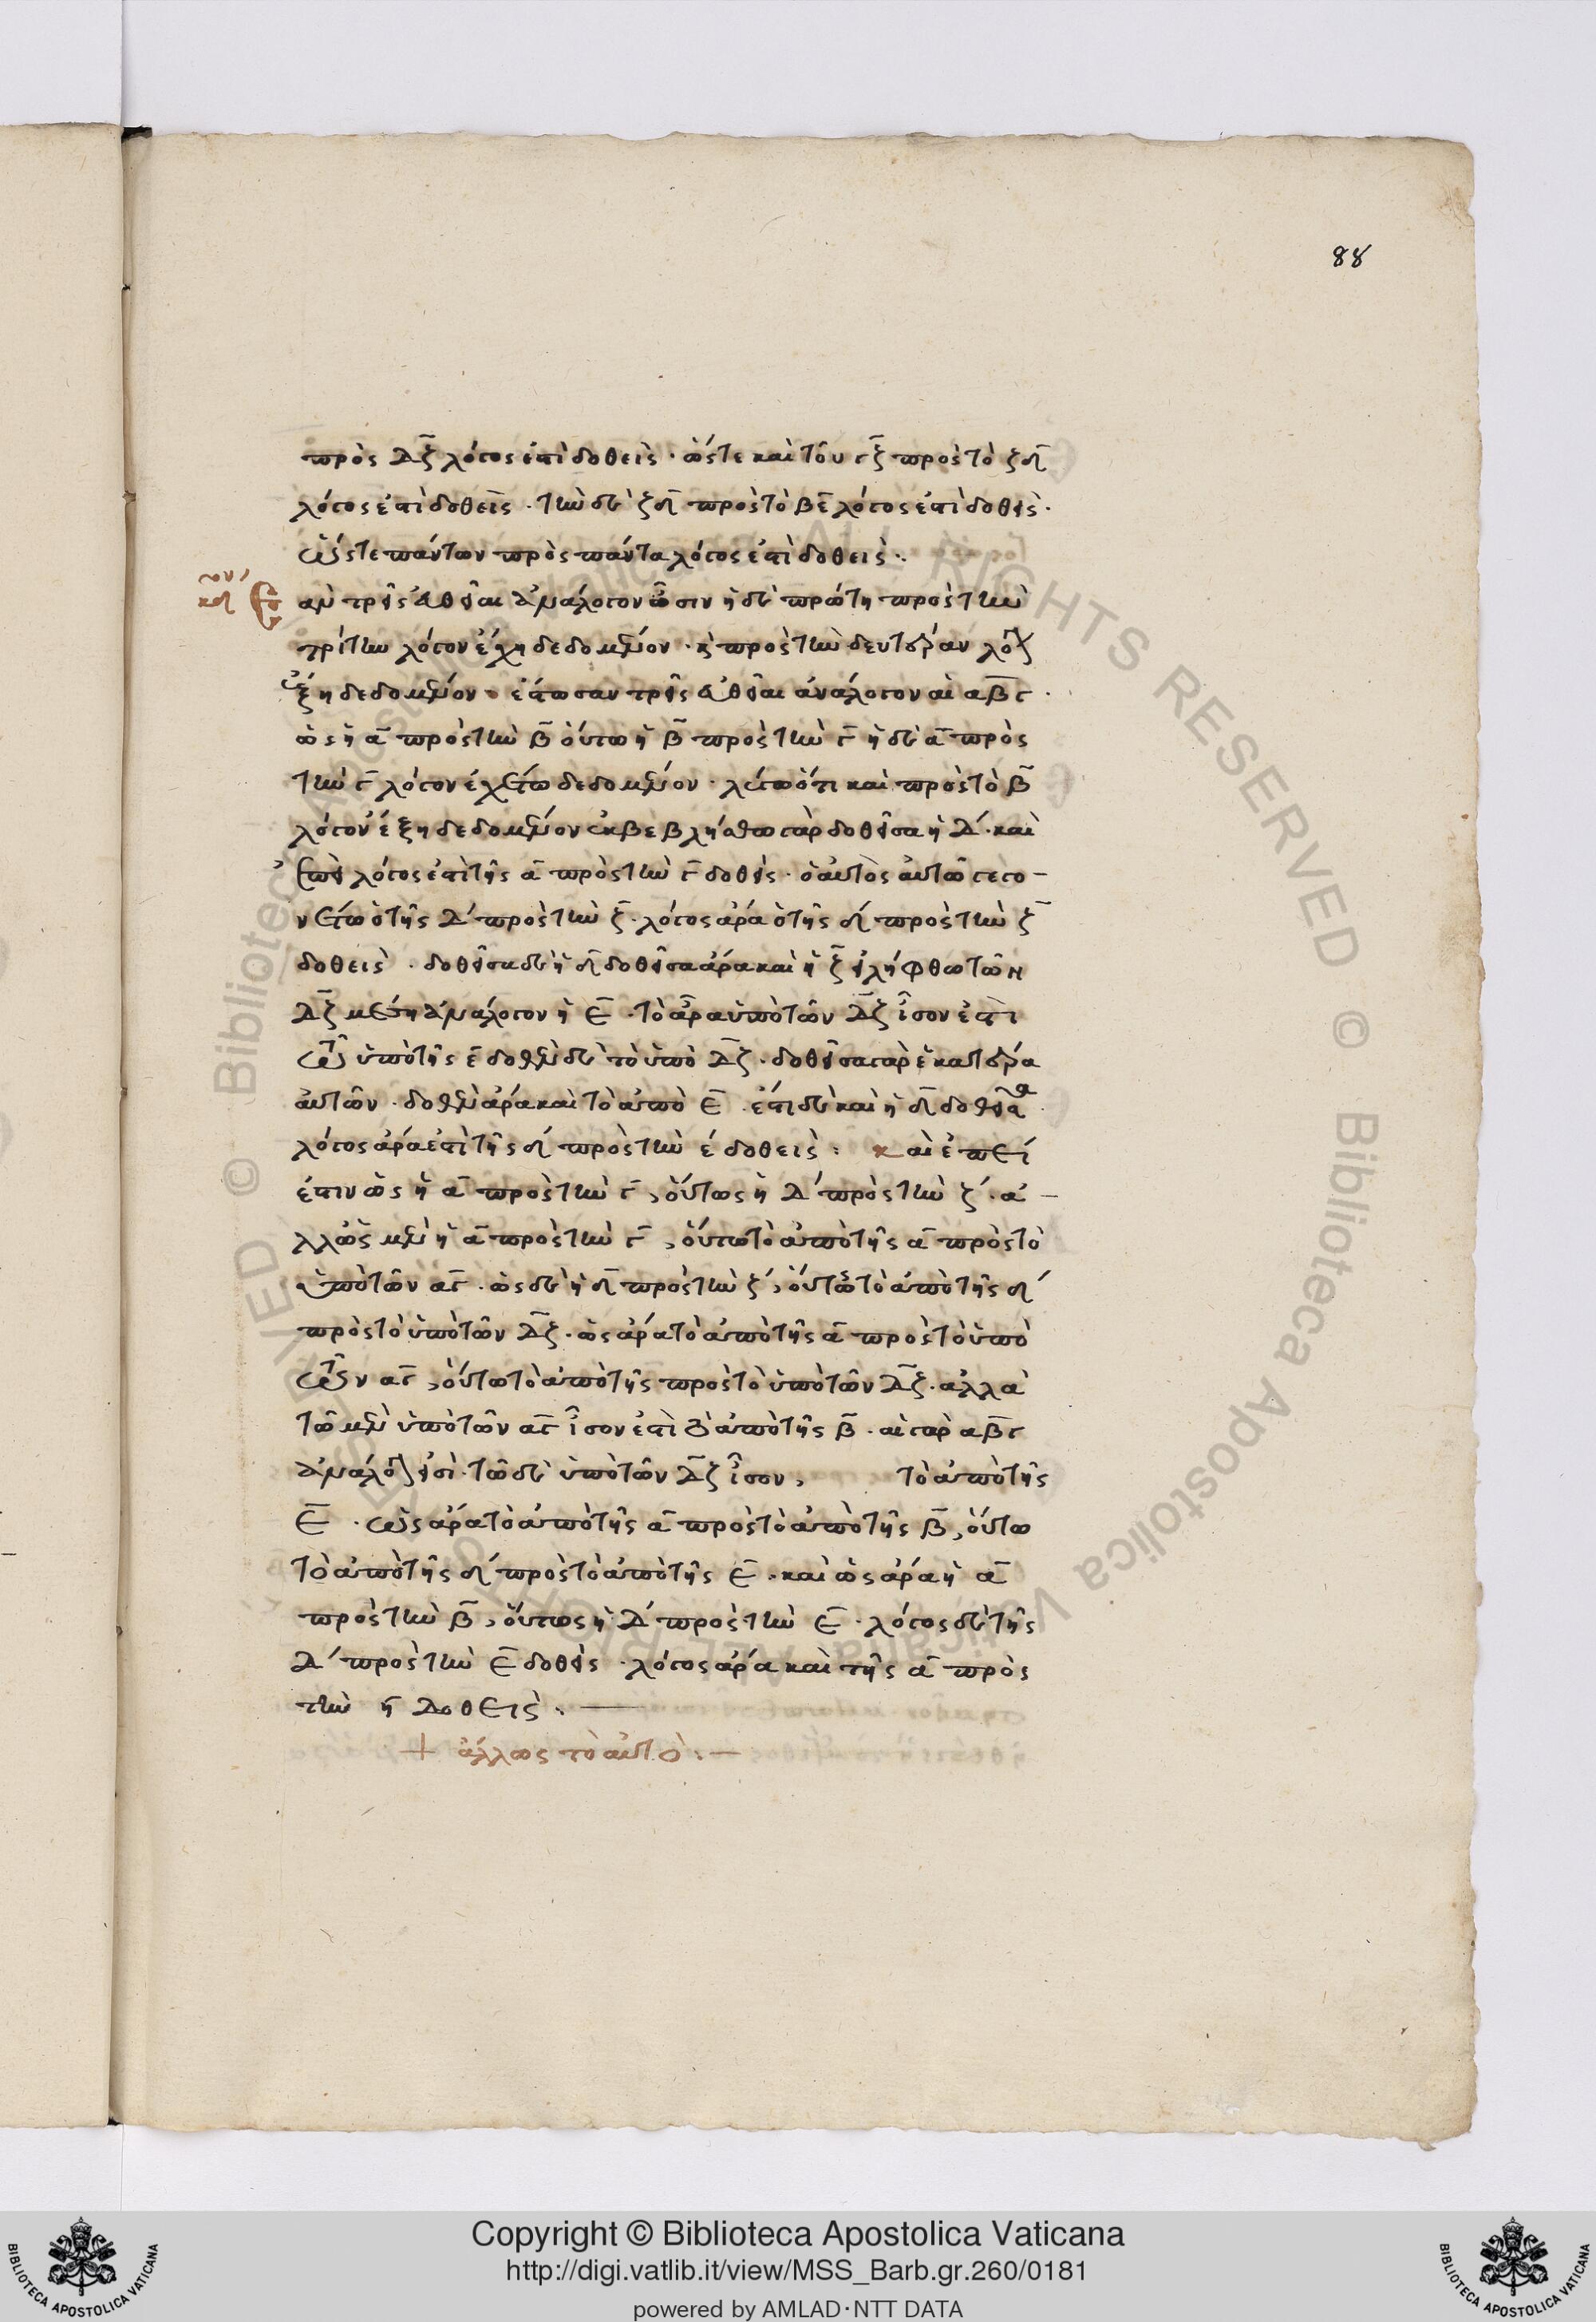 88
πρὸς δζ λόγος ἐστὶ δοθεὶς · ὥστε καὶ τοῦ γζ πρὸς τὸ ζη
λόγος ἐστὶ δοθεὶς · τὴν δὲ ζη πρὸς τὸ βε λόγος ἐστὶ δοθεὶς ·
ὥστε πάντων πρὸς πάντα λόγος ἐστὶ δοθεὶς :
Ἐὰν τρεῖς εὐθεῖαι ἀνάλογον ὦσιν ἡ δὲ πρώτη πρὸς τὴν
τρίτην λόγον ἔχη δεδομένον · κ πρὸς τὴν δευτέραν λόγ
ἕξη δεδομένον · ἔστωσαν τρεῖς εὐθεῖαι ἀνάλογον αἱ αβγ ·
ὡς ἡ α πρὸς τὴν β οὕτω ἡ β πρὸς τὴν γ ἡ δὲ α πρὸς
τὴν γ λόγον ἐχέτω δεδομένον · λέγω ὅτι καὶ πρὸς τὸ β
λόγον ἕξη δεδομένον ἐκβεβλήσθω γὰρ δοθεῖσα ἡ δ · καὶ
ἐπεὶ λόγος ἐστὶ τῆς α πρὸς τὴν γ δοθείς · ὁ αὐτὸς αὐτῶ γεγο-
νέτω ὁ τῆς δ πρὸς τὴν ζ · λόγος ἄρα ὁ τῆς δ πρὸς τὴν ζ
δοθεὶς · δοθεῖσα δὲ ἡ δ δοθεῖσα ἄρα καὶ ἡ ζ εἰλήφθω τῶν
δζ μέση ἀνάλογον ἡ ε · τὸ ἄρα ὑπὸ τῶν δζ ἴσον ἐστὶ
τῶ ὑπὸ τῆς ε δοθὲν δὲ τὸ ὑπὸ δζ · δοθεῖσα γὰρ ἑκατέρα
αὐτῶν · δοθὲν ἄρα καὶ τὸ ἀπὸ ε · ἔστι δὲ καὶ ἡ δ δοθεῖσα
λόγος ἄρα ἐστὶ τῆς δ πρὸς τὴν ε δοθεὶς : καὶ ἐπεί
ἐστιν ὡς ἡ α πρὸς τὴν γ, οὕτως ἡ δ πρὸς τὴν ζ · α-
λλ ὡς μὲν ἡ α πρὸς τὴν γ, οὕτω τὸ ἀπὸ τῆς α πρὸς τὸ
ὑπὸ τῶν αγ · ὡς δὲ ἡ δ πρὸς τὴν ζ, οὕτως τὸ ἀπὸ τῆς δ
πρὸς τὸ ὑπὸ τῶν δζ · ὡς ἄρα τὸ ἀπὸ τῆς α πρὸς τὸ ὑπὸ
τῶν αγ, οὕτω τὸ ἀπὸ τῆς πρὸς τὸ ὑπὸ τῶν δζ · ἀλλὰ
τῶ μὲν ὑπὸ τῶν αγ ἴσον ἐστὶ τὸ ἀπὸ τῆς β · αἱ γὰρ αβγ
ἀνάλογ εἰσι · τῶ δὲ ὑπὸ τῶν δζ ἴσον, τὸ ἀπὸ τῆς
ε · ὡς ἄρα τὸ ἀπὸ τῆς α πρὸς τὸ ἀπὸ τῆς β, οὕτω
τὸ ἀπὸ τῆς δ πρὸς τὸ ἀπὸ τῆς ε · καὶ ὡς ἄρα ἡ α
πρὸς τὴν β, οὕτως ἡ δ πρὸς τὴν ε · λόγος δὲ τῆς
δ πρὸς τὴν ε δοθείς · λόγος ἄρα καὶ τῆς α πρὸς
τὴν η δοθεὶς ·
+ ἄλλως τὸ αὐτὸ : —
Copyright © Biblioteca Apostolica Vaticana
http://digi.vatlib.it/view/MSS_Barb.gr.260/0181
powered by AMLAD·NTT DATA